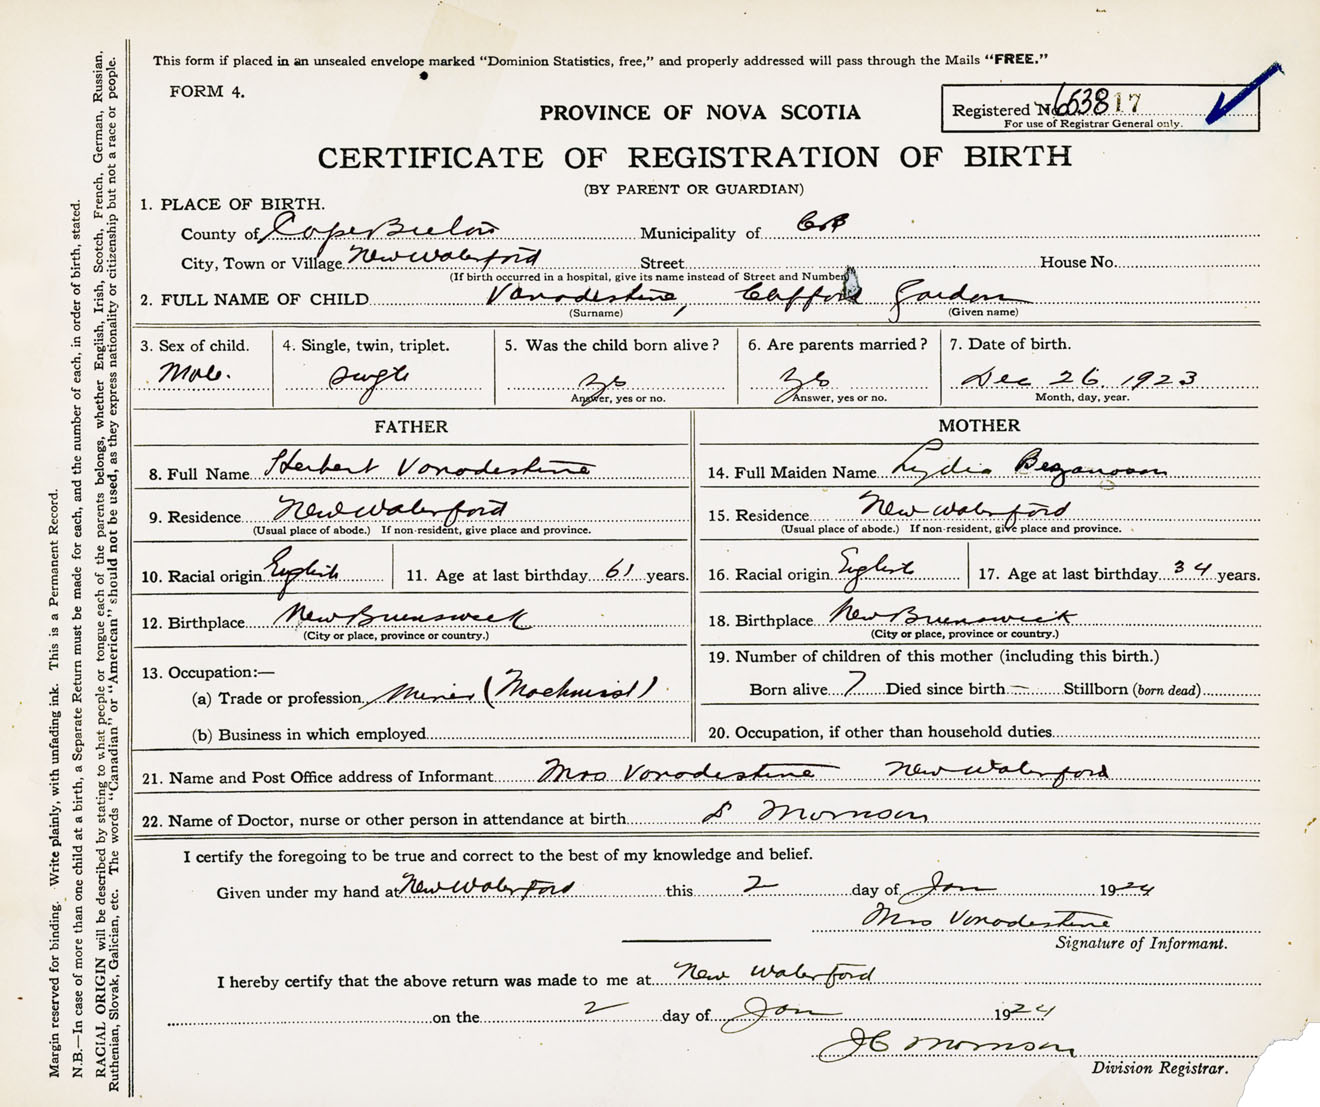 This form if placed in an unsealed envelope marked “Dominion Statistics, free,” and properly addressed will pass through the Mails “FREE.”
FORM 4.
PROVINCE OF NOVA SCOTIA
Registered No. 653817
For use of Registrar General only.
CERTIFICATE OF REGISTRATION OF BIRTH
(BY PARENT OR GUARDIAN)
1. PLACE OF BIRTH.
County of Cape Breton Municipality of C B
City, Town or Village New Waterford Street House No.
(If birth occurred in a hospital, give its name instead of Street and Number)
2. FULL NAME OF CHILD Vanodestine, Clifford Gordon
(Surname) (Given name)
3. Sex of child. 4. Single, twin, triplet. 5. Was the child born alive? 6. Are parents married? 7. Date of birth.
Male. single Yes Yes Dec 26 1923
Answer, yes or no. Answer, yes or no. Month, day, year.
FATHER MOTHER
8. Full Name Herbert Vanodestine 14. Full Maiden Name Lydia
9. Residence New Waterford 15. Residence New Waterford
(Usual place of abode.) If non-resident, give place and province. (Usual place of abode.) If non-resident, give place and province.
10. Racial origin English 11. Age at last birthday 61 years. 16. Racial origin English 17. Age at last birthday 34 years.
12. Birthplace New Brunswick 18. Birthplace New Brunswick
(City or place, province or country.) (City or place, province or country.)
13. Occupation:—
(a) Trade or profession Miner (Machinist)
(b) Business in which employed
19. Number of children of this mother (including this birth.)
Born alive 7 Died since birth — Stillborn (born dead)
20. Occupation, if other than household duties
21. Name and Post Office address of Informant Mrs Vanodestine New Waterford
22. Name of Doctor, nurse or other person in attendance at birth Morrison
I certify the foregoing to be true and correct to the best of my knowledge and belief.
Given under my hand at New Waterford this 2 day of Jan 1924
Mrs Vanodestine
Signature of Informant.
I hereby certify that the above return was made to me at New Waterford
on the 2 day of Jan 1924
J C Morrison
Division Registrar.
Margin reserved for binding. Write plainly, with unfading ink. This is a Permanent Record.
N.B.—In case of more than one child at a birth, a Separate Return must be made for each, and the number of each, in order of birth, stated.
RACIAL ORIGIN will be described by stating to what people or tongue each of the parents belongs, whether English, Irish, Scotch, French, German, Russian,
Ruthenian, Slovak, Galician, etc. The words “Canadian” or “American” should not be used, as they express nationality or citizenship but not a race or people.